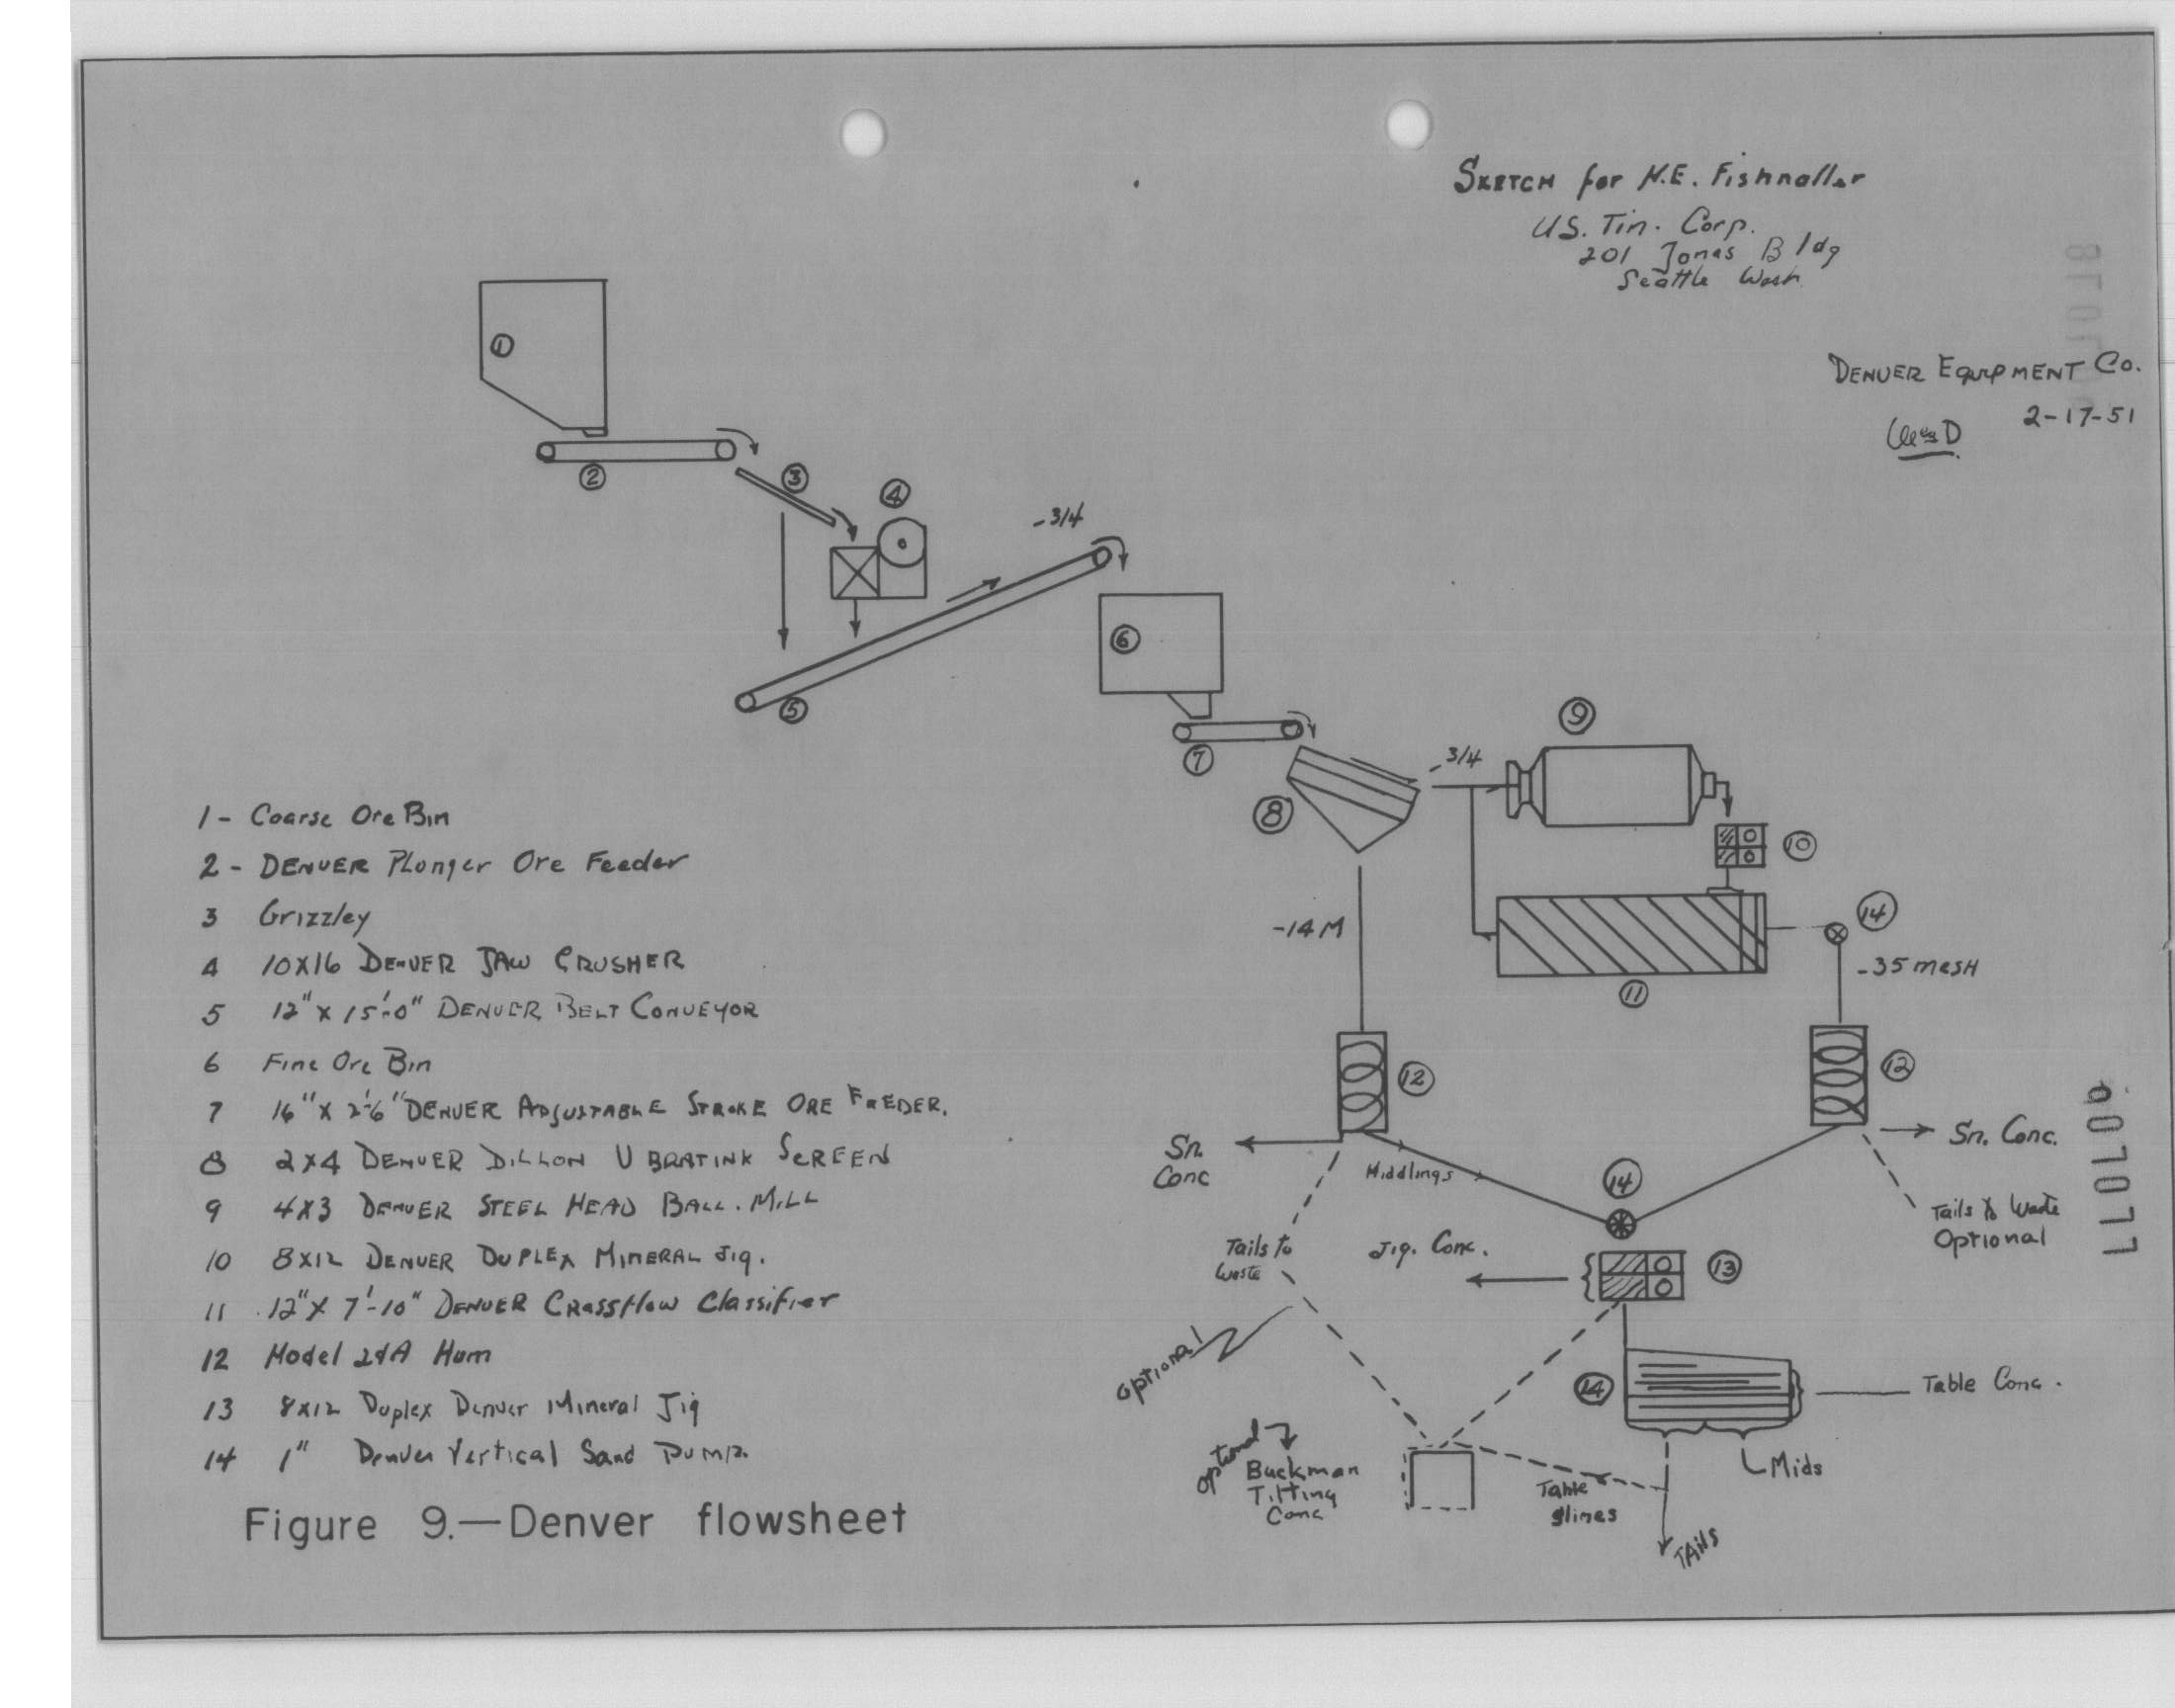 SKETCH for H.E. Fishnaller
U.S. Tin. Corp.
201 Jones Bldg
Seattle Wash
DENVER EQUIPMENT Co.
2-17-51
1
2
3
4
-3/4
5
6
7
8
-3/4
9
10
-14 M
14
-35 mesh
11
12
12
Sn. Conc
Middlings
14
Sn. Conc.
Tails to Waste
Tails to Waste Optional
Jig. Conc.
13
optional
14
Table Conc.
optional
Buckman
Tilting
Conc
Table
slimes
Mids
TAils
1 - Coarse Ore Bin
2 - DENVER Plunger Ore Feeder
3 Grizzley
4 10X16 DENVER JAW CRUSHER
5 12" X 15'-0" DENVER BELT CONVEYOR
6 Fine Ore Bin
7 16" X 2'-6" DENVER ADJUSTABLE STROKE ORE FEEDER.
8 2X4 DENVER DILLON VIBRATING SCREEN
9 4X3 DENVER STEEL HEAD BALL. MILL
10 8X12 DENVER DUPLEX MINERAL Jig.
11 12" X 7'-10" DENVER Crossflow Classifier
12 Model 24A Hum
13 8X12 Duplex Denver Mineral Jig
14 1" Denver Vertical Sand Pump.
Figure 9.—Denver flowsheet